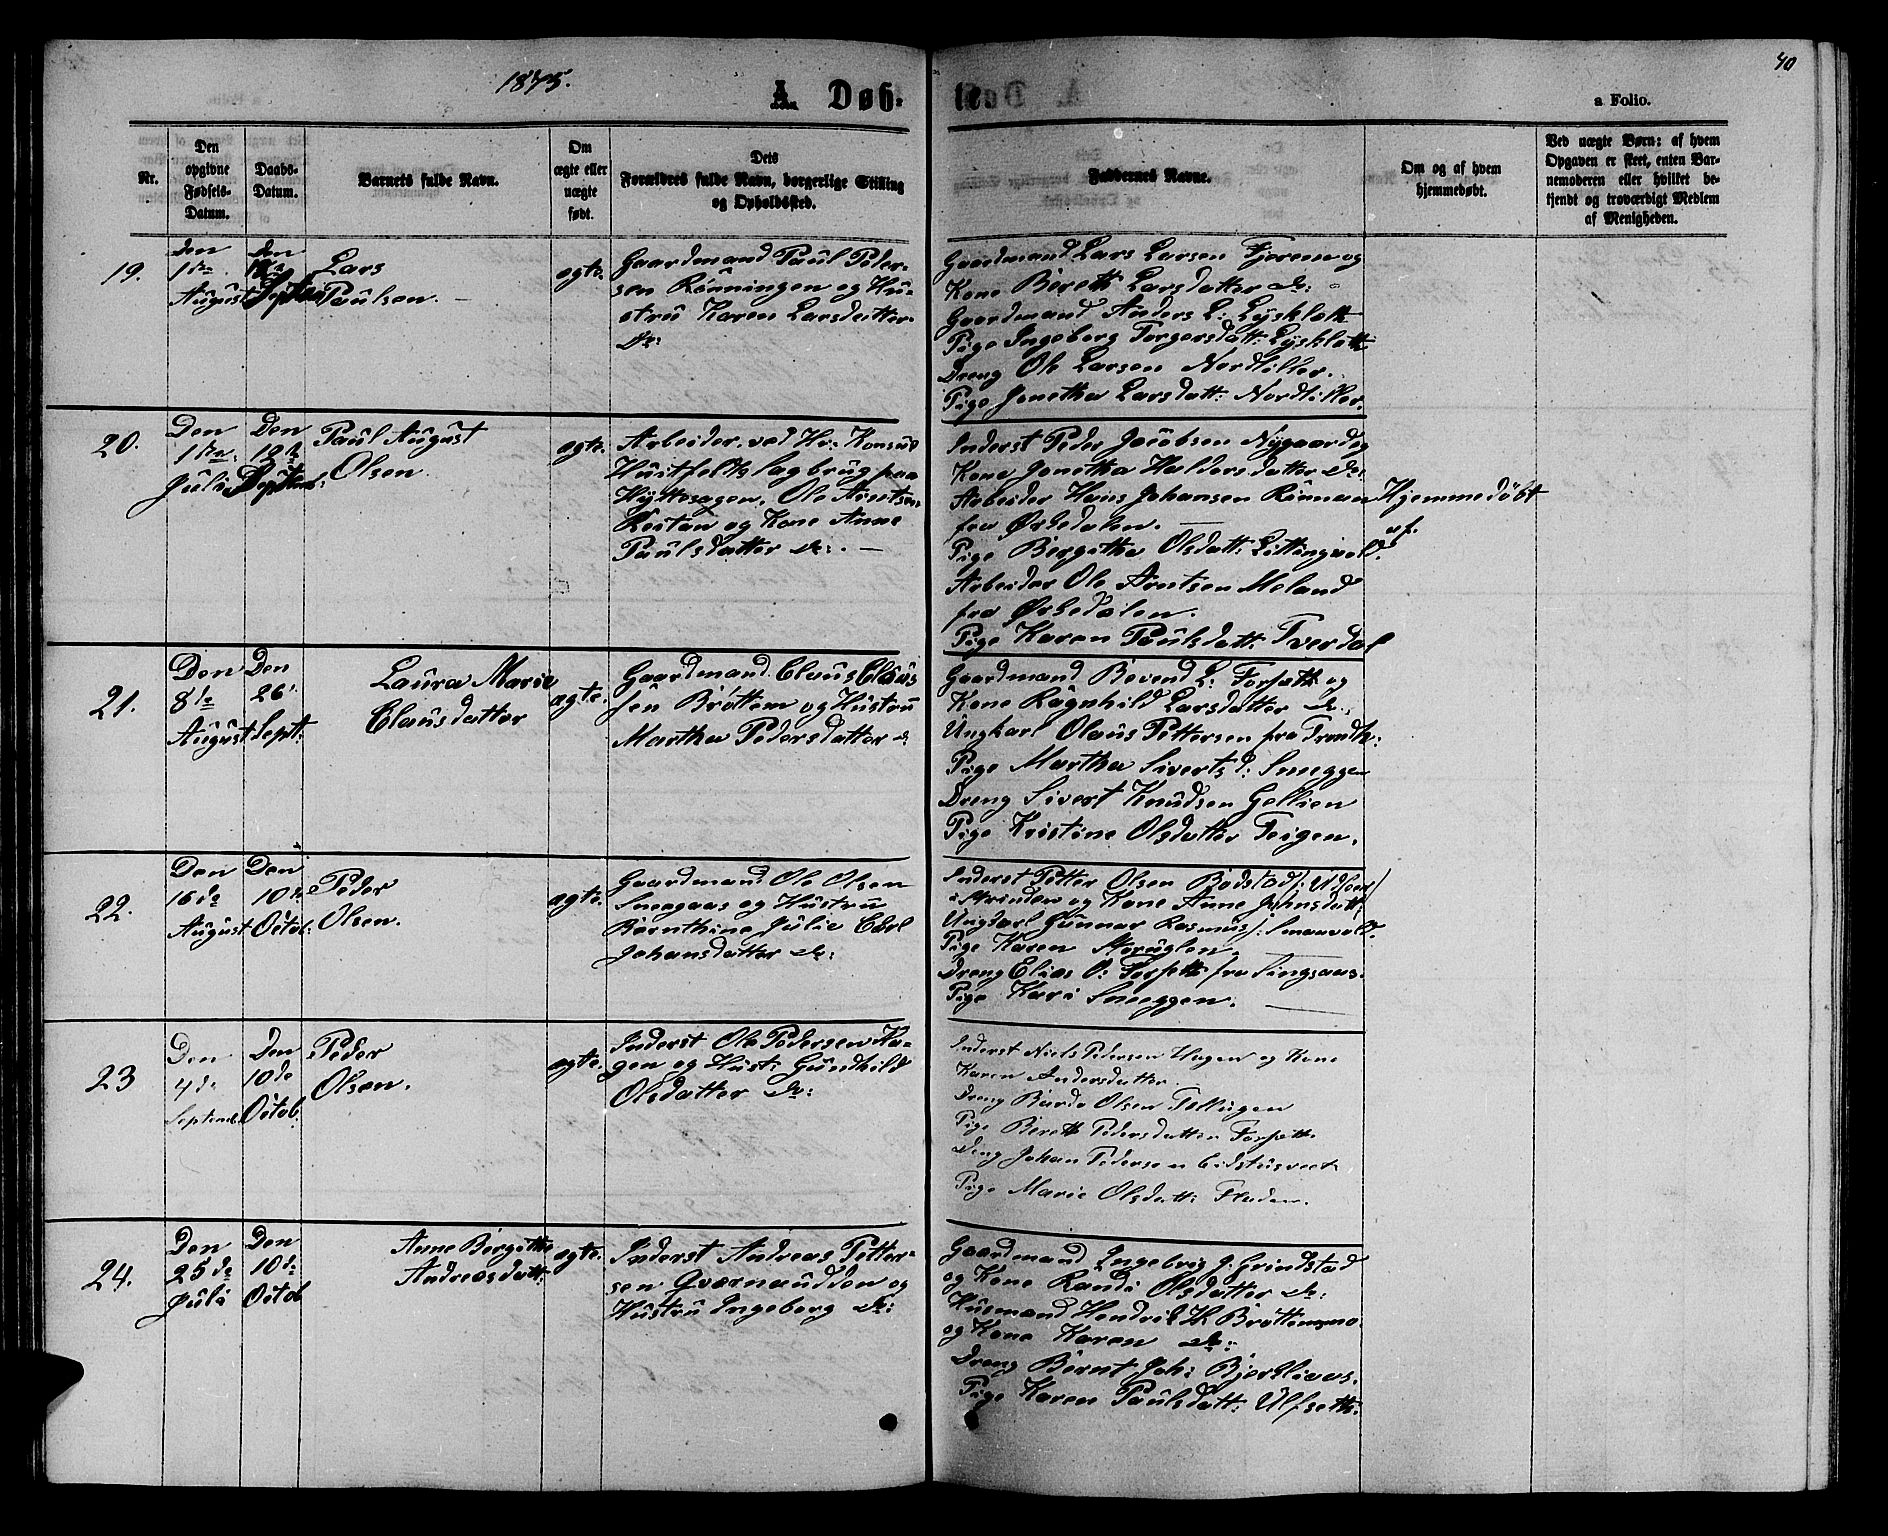 1875.
A. Døb-
te
40
a Folio.
Nr.
Den
opgivne
Fødsels-
Datum.
Daabs-
Datum.
Barnets fulde Navn.
Om
ægte eller
uægte
født.
Dets
Forældres fulde Navn, borgerlige Stilling
og Opholdssted.
Faddernes Navne.
Om og af hvem
hjemmedøbt.
Ved uægte Børn: af hvem
Opgaven er skeet, enten Bar-
nemoderen eller hvilket be-
kjendt og troværdigt Medlem
af Menigheden.
19.
Den
1ste
August
Den
12te
Septem
Lars
Paulsen.
ægte.
Gaardmand Paul Peder-
sen Rönningen og Hu-
strü Karen Larsdatter
do:
Gaardmand Lars Larsen Fjeren og
Kone Berett Larsdatter do:
Gaardmand Anders L: Lysklatt
Pige Ingeborg Torgersdatt: Lysklatt
Dreng Ole Larsen Nordtiller.
Pige Jonetha Larsdatt: Nordtiller.
20.
Den
1ste
Juli
Den
12te
Septemb:
Paul August
Olsen
ægte.
Arbeider ved Hr: Konsul
Huitfelts sagbrug paa
Hyttesagen, Ole Arntsen
Restan og Kone Anne
Paulsdatter do:
Inderst Peder Jacobsen Nygaard og
Kone Jonetha Haldorsdatter do:
Arbeider Hans Johansen Rönnan
fra Ørkedalen.
Pige Bergitha Olsdatt: Littingvold
Arbeider Ole Arntsen Moland
fra Ørkedalen.
Pige Karen Paulsdatt: Tverdal
Hjemmedöbt
af.
21.
Den
8de
August
Den
26.
Sept:
Laura Marie
Clausdatter
ægte.
Gaardmand Claus Claus
sen Bröttem og Hustrü
Martha Pedersdatter do
Gaardmand Esvend L: Forsett og
Kone Ragnhild Larsdatter do:
Ungkarl Olaus Pettersen fra Trondh:
Pige Martha Siverts d: Sneggen
Dreng Sivert Knudsen Gellien
Pige Kristine Olsdatter Teigen.
22.
Den
16de
August
Den
10de
Octob:
Peder
Olsen.
ægte.
Gaardmand Ole Olsen
Sneegaas og Hustru
Bernthine Julie Carl
Johansdatter do:
Inderst Petter Olsen Bodstad
i Strinden og Kone Anne Johnsdatt:
Ungkarl Gunnar Rasmus: Smaavold.
Pige Karen Storuglen.
Dreng Elias O: Forsett fra Singsaas.
Pige Kari Sneggen.
23
Den
4de
Septemb.
Den
10de
Octob.
Peder
Olsen.
ægte.
Inderst Ole Pedersen Ha-
gen og Hust: Gundhild
Olsdatter do:
Inderst Niels Pedersen Hagen og Kone
Karen Andersdatter
Dreng Baarde Olsen Tellugen
Pige Berett Pedersdatter Forsett
Dreng Johan Pedersen
Pige Marie Olsdatt: Fladen.
24.
Den
25de
Juli
Den
10de
Octob
Anne Bergitte
Andreasdatt:
ægte.
Inderst Andreas Petter-
sen Qværnaudden og
Hustru Ingeborg do:
Gaardmand Ingebrig J. Grindstad
og Kone Randi Olsdatter do:
Husmand Hendrik H. Bröttemsmo.
og Kone Karen do:
Dreng Bernt Joh: Bjerklivos.
Pige Karen Paulsdatt: Ulfsett: